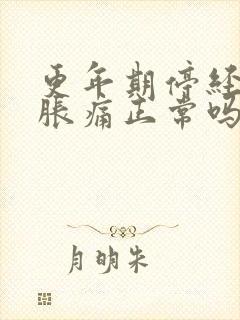 更年期停经
胀痛正常吗
月明朱